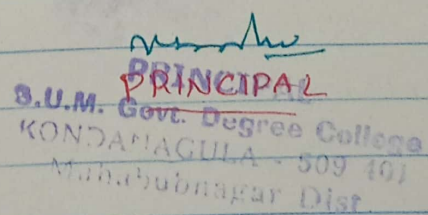 PRINCIPAL
S.U.M. Govt. Degree College
KONDANAGULA - 509 401
Mahabubnagar Dist